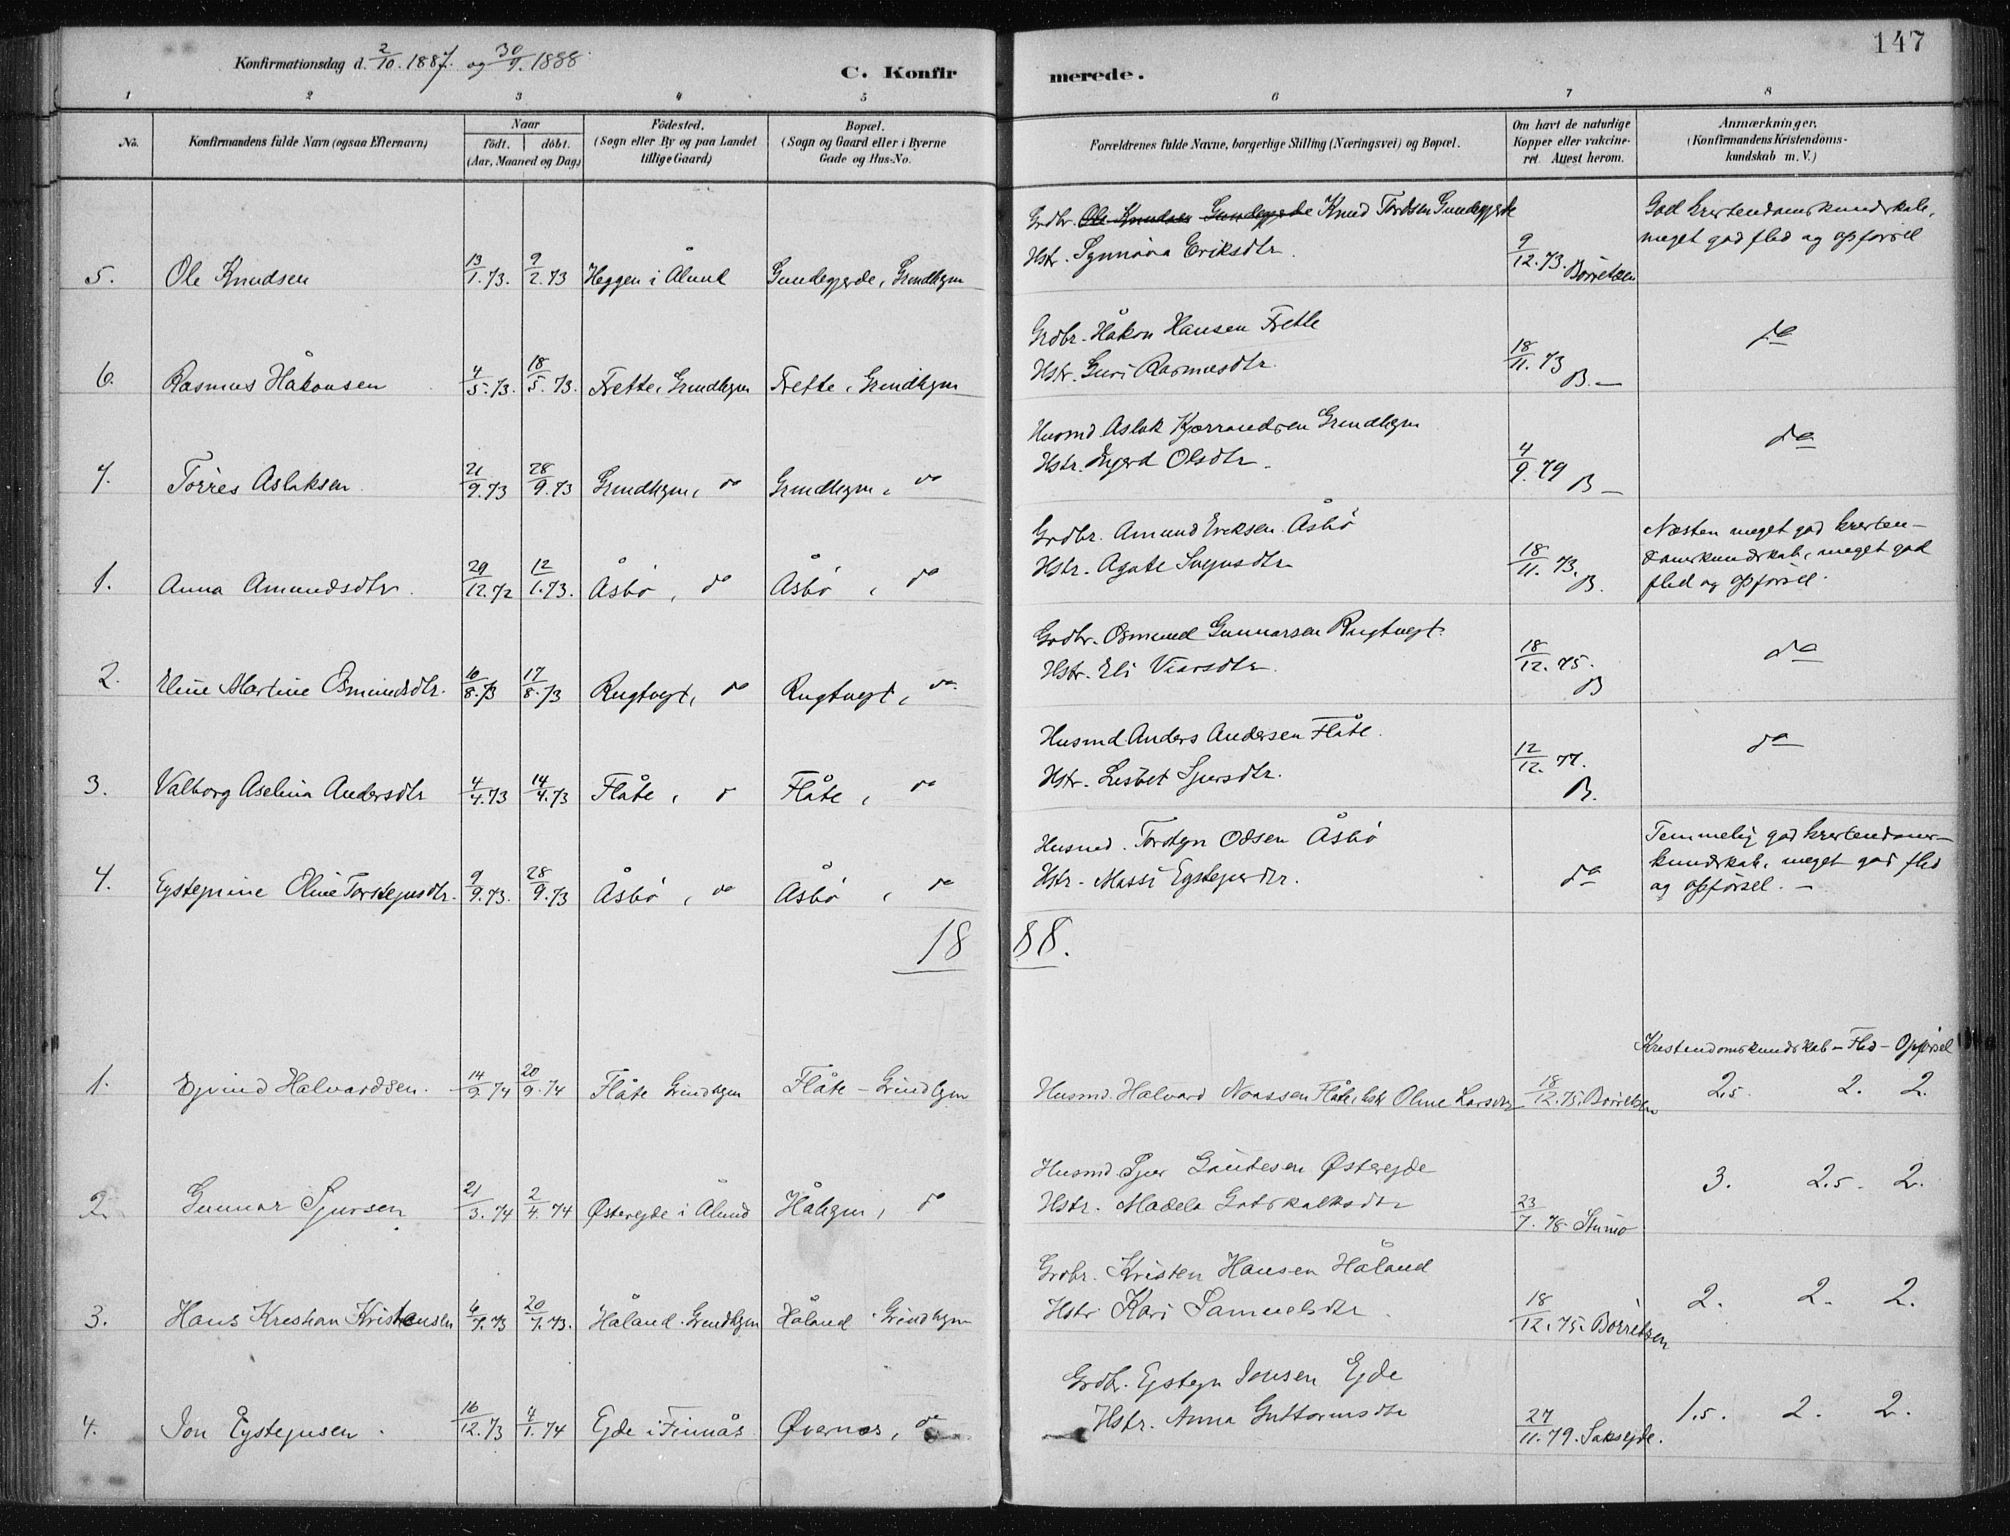 147
Konfirmationsdag d. 2/10. 1887. og 30/9. 1888
C. Konfirmerede.
1 2 3 4 5 6 7 8
No.
Konfirmandens fulde Navn (ogsaa Efternavn)
Naar
födt. döbt.
(Aar, Maaned og Dag)
Födested.
(Sogn eller By og paa Landet
tillige Gaard)
Bopæl.
(Sogn og Gaard eller i Byerne
Gade og Hus-No.
Forældrenes fulde Navne, borgerlige Stilling (Næringsvei) og Bopæl.
Om havt de naturlige
Kopper eller vakcine-
ret. Attest herom.
Anmærkninger.
(Konfirmandens Kristendoms-
kundskab m. V.)
Grdbr. Ole Knudsen Gundegjerde Knud Tordsen Gundegjerde
Hstr. Synnøva Eriksdtr
God krestendomskundskab,
meget god flid og opførsel
5. Ole Knudsen 13/1. 73. 9/2. 73 Heggen i Ålund Gundegjerde, Grindhgm 9/12. 73. Børretzen
Grdbr. Håkon Hansen Frette
Hstr. Guri Rasmusdtr.
do
6. Rasmus Håkonsen 4/5. 73. 18/5. 73. Frette, Grindhgm Frette, Grindhgm 18/11. 73 B. —
Husmd Aslak Kjerrandsen Grindhgm
Hstr. Ingerd Olsdtr.
do
7. Torres Aslaksen 21/9. 73 28/9. 73 Grindhgm, do Grindhgm, do 4/9. 79 B —
Grdbr. Amund Ereksen Åsbø
Hstr. Agate Svejnsdtr
Næsten meget god kresten-
domskundskab, meget god
flid og opførsel.
1. Anna Amundsdtr. 29/12. 72 12/1. 73. Åsbø, do Åsbø, do 18/11. 73. B.
Grdbr. Osmund Gunnarsen Rugtvegt.
Hstr. Eli Viarsdtr.
do
2. Eline Martine Osmundsdtr. 16/8. 73 17/8. 73 Rugtvegt, do Rugtvegt, do 18/12. 75. B
Husmd Anders Andersen Flåte.
Hstr. Lisbet Sjursdtr.
do
3. Valborg Aselina Andersdtr 4/4. 73 14/4. 73 Flåte, do Flåte, do 12/12. 77. B.
Husmd. Torstejn Olsen Åsbø
Hstr. Massi Ejstejnsdtr.
Temmelig god krestendoms-
kundskab, meget god flid
og opførsel. —
4. Ejstejnine Oline Torstejnsdtr. 9/9. 73. 28/9. 73 Åsbø, do Åsbø, do do
1888.
Krestendomskundskab – Flid – Opførsel
1. Ejvind Halvardsen. 14/9. 74 20/9. 74 Flåte Grindhgm Flåte – Grindhgm Husmd. Halvard Noassen Flåte, hstr Oline Larsdtr 18/12. 75. Børretzen 2.5. 2. 2.
Husmd. Sjur Gautesen Østerejde
Hstr. Madela Gotskalksdtr
2. Gunnar Sjursen 21/3. 74 2/4. 74 Østerejde i Ålund Håhgm, do 23/7. 78. Stumo 3. 2.5. 2.
Grdbr. Kristen Hansen Håland
Hstr Kari Samuelsdtr.
3. Hans Krestian Kristensen 6/7. 73 20/7. 73. Håland. Grindhgm Håland. Grindhgm 18/12. 75. Børretzen 2. 2. 2.
Grdbr. Ejstejn Jonsen Ejde
Hstr. Anna Guttormsdtr
4. Jon Ejstejnsen. 16/12. 73 4/1. 74 Ejde i Finnås Øvernes, do 27/11. 79. Saksejde. 1.5. 2. 2.